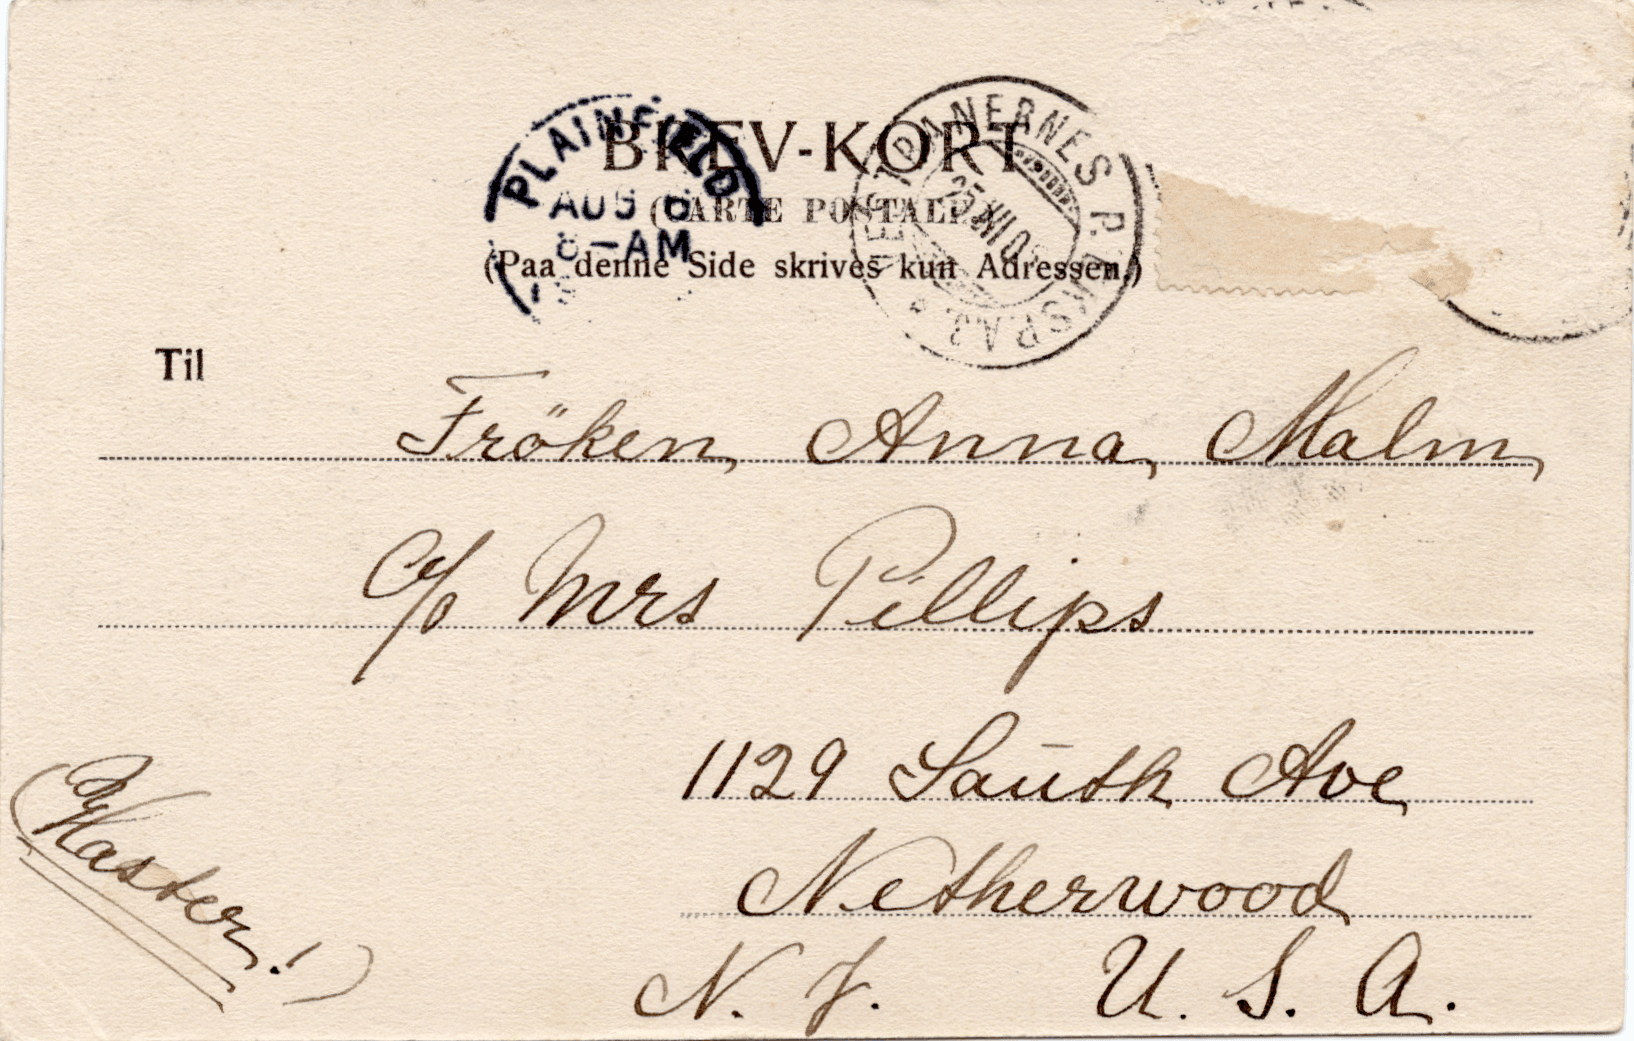 BREV-KORT
(CARTE POSTALE)
(Paa denne Side skrives kun Adressen.)
PLAINFIELD
AUG 6
8-AM
VESTBANERNES P. EKSP. A.3.
25 VII
Til
Fröken, Anna, Malm,
c/o Mrs Pillips
1129 Saūth Ave
Netherwood
N. J. U. S. A.
(Haster!)